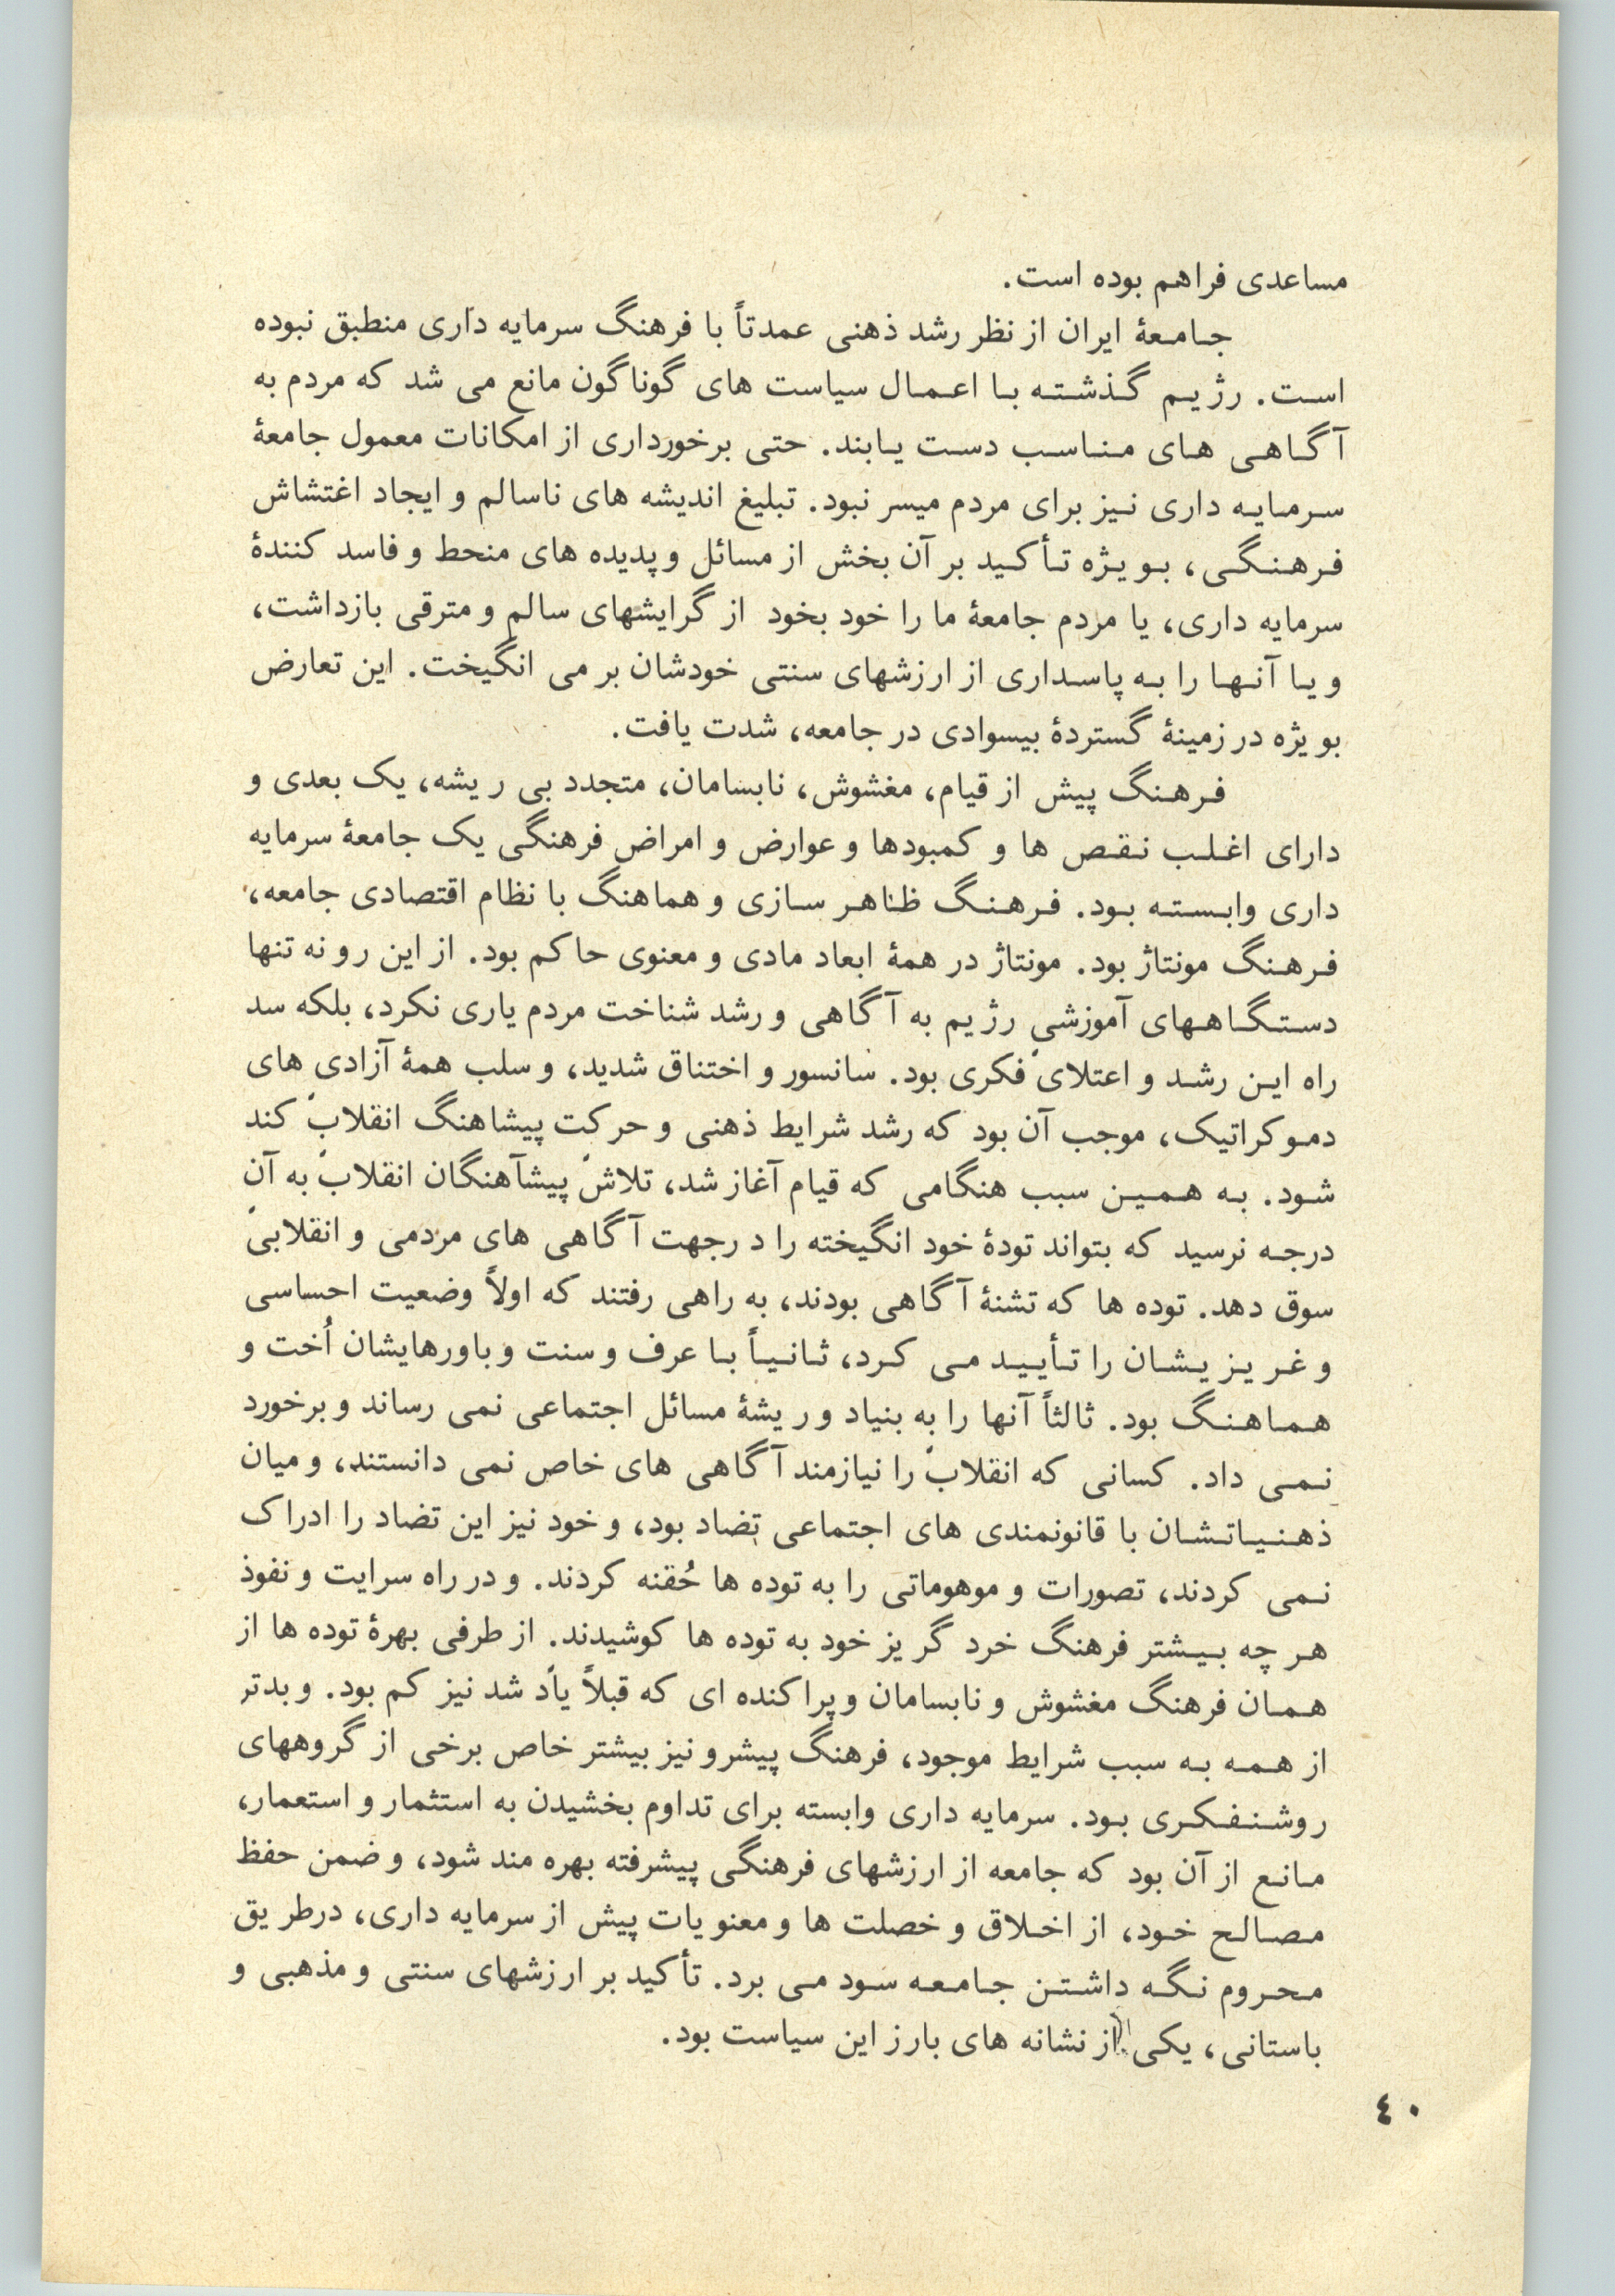 مساعدی فراهم بوده است.
جامعهٔ ایران از نظر رشد ذهنی عمدتاً با فرهنگ سرمایه داری منطبق نبوده
است. رژیم گذشته با اعمال سیاست های گوناگون مانع می شد که مردم به
آگاهی های مناسب دست یابند. حتی برخورداری از امکانات معمول جامعهٔ
سرمایه داری نیز برای مردم میسر نبود. تبلیغ اندیشه های ناسالم و ایجاد اغتشاش
فرهنگی، بویژه تأکید بر آن بخش از مسائل و پدیده های منحط و فاسد کنندهٔ
سرمایه داری، یا مردم جامعهٔ ما را خود بخود از گرایشهای سالم و مترقی بازداشت،
و یا آنها را به پاسداری از ارزشهای سنتی خودشان بر می انگیخت. این تعارض
بویژه در زمینهٔ گستردهٔ بیسوادی در جامعه، شدت یافت.
فرهنگ پیش از قیام، مغشوش، نابسامان، متجدد بی ریشه، یک بعدی و
دارای اغلب نقص ها و کمبودها و عوارض و امراض فرهنگی یک جامعهٔ سرمایه
داری وابسته بود. فرهنگ ظاهر سازی و هماهنگ با نظام اقتصادی جامعه،
فرهنگ مونتاژ بود. مونتاژ در همهٔ ابعاد مادی و معنوی حاکم بود. از این رو نه تنها
دستگاههای آموزشی رژیم به آگاهی و رشد شناخت مردم یاری نکرد، بلکه سد
راه این رشد و اعتلای فکری بود. سانسور و اختناق شدید، و سلب همهٔ آزادی های
دموکراتیک، موجب آن بود که رشد شرایط ذهنی و حرکت پیشاهنگ انقلاب کند
شود. به همین سبب هنگامی که قیام آغاز شد، تلاش پیشآهنگان انقلاب به آن
درجه نرسید که بتواند تودهٔ خود انگیخته را در جهت آگاهی های مردمی و انقلابی
سوق دهد. توده ها که تشنهٔ آگاهی بودند، به راهی رفتند که اولاً وضعیت احساسی
و غریزیشان را تأیید می کرد، ثانیاً با عرف و سنت و باورهایشان اُخت و
هماهنگ بود. ثالثاً آنها را به بنیاد و ریشهٔ مسائل اجتماعی نمی رساند و برخورد
نمی داد. کسانی که انقلاب را نیازمند آگاهی های خاص نمی دانستند، و میان
ذهنیاتشان با قانونمندی های اجتماعی تضاد بود، و خود نیز این تضاد را ادراک
نمی کردند، تصورات و موهوماتی را به توده ها حُقنه کردند. و در راه سرایت و نفوذ
هر چه بیشتر فرهنگ خرد گریز خود به توده ها کوشیدند. از طرفی بهرهٔ توده ها از
همان فرهنگ مغشوش و نابسامان و پراکنده ای که قبلاً یاد شد نیز کم بود. و بدتر
از همه به سبب شرایط موجود، فرهنگ پیشرو نیز بیشتر خاص برخی از گروههای
روشنفکری بود. سرمایه داری وابسته برای تداوم بخشیدن به استثمار و استعمار،
مانع از آن بود که جامعه از ارزشهای فرهنگی پیشرفته بهره مند شود، و ضمن حفظ
مصالح خود، از اخلاق و خصلت ها و معنویات پیش از سرمایه داری، درطریق
محروم نگه داشتن جامعه سود می برد. تأکید بر ارزشهای سنتی و مذهبی و
باستانی، یکی از نشانه های بارز این سیاست بود.
٤٠